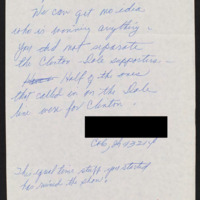 We can get no idea
who is winning anything.
You did not separate
the Clinton - Dole supporters. -
Half of the ones
that called in on the Dole
line were for Clinton.
Col, Oh 43214
The equal time stuff you started
has ruined the show!